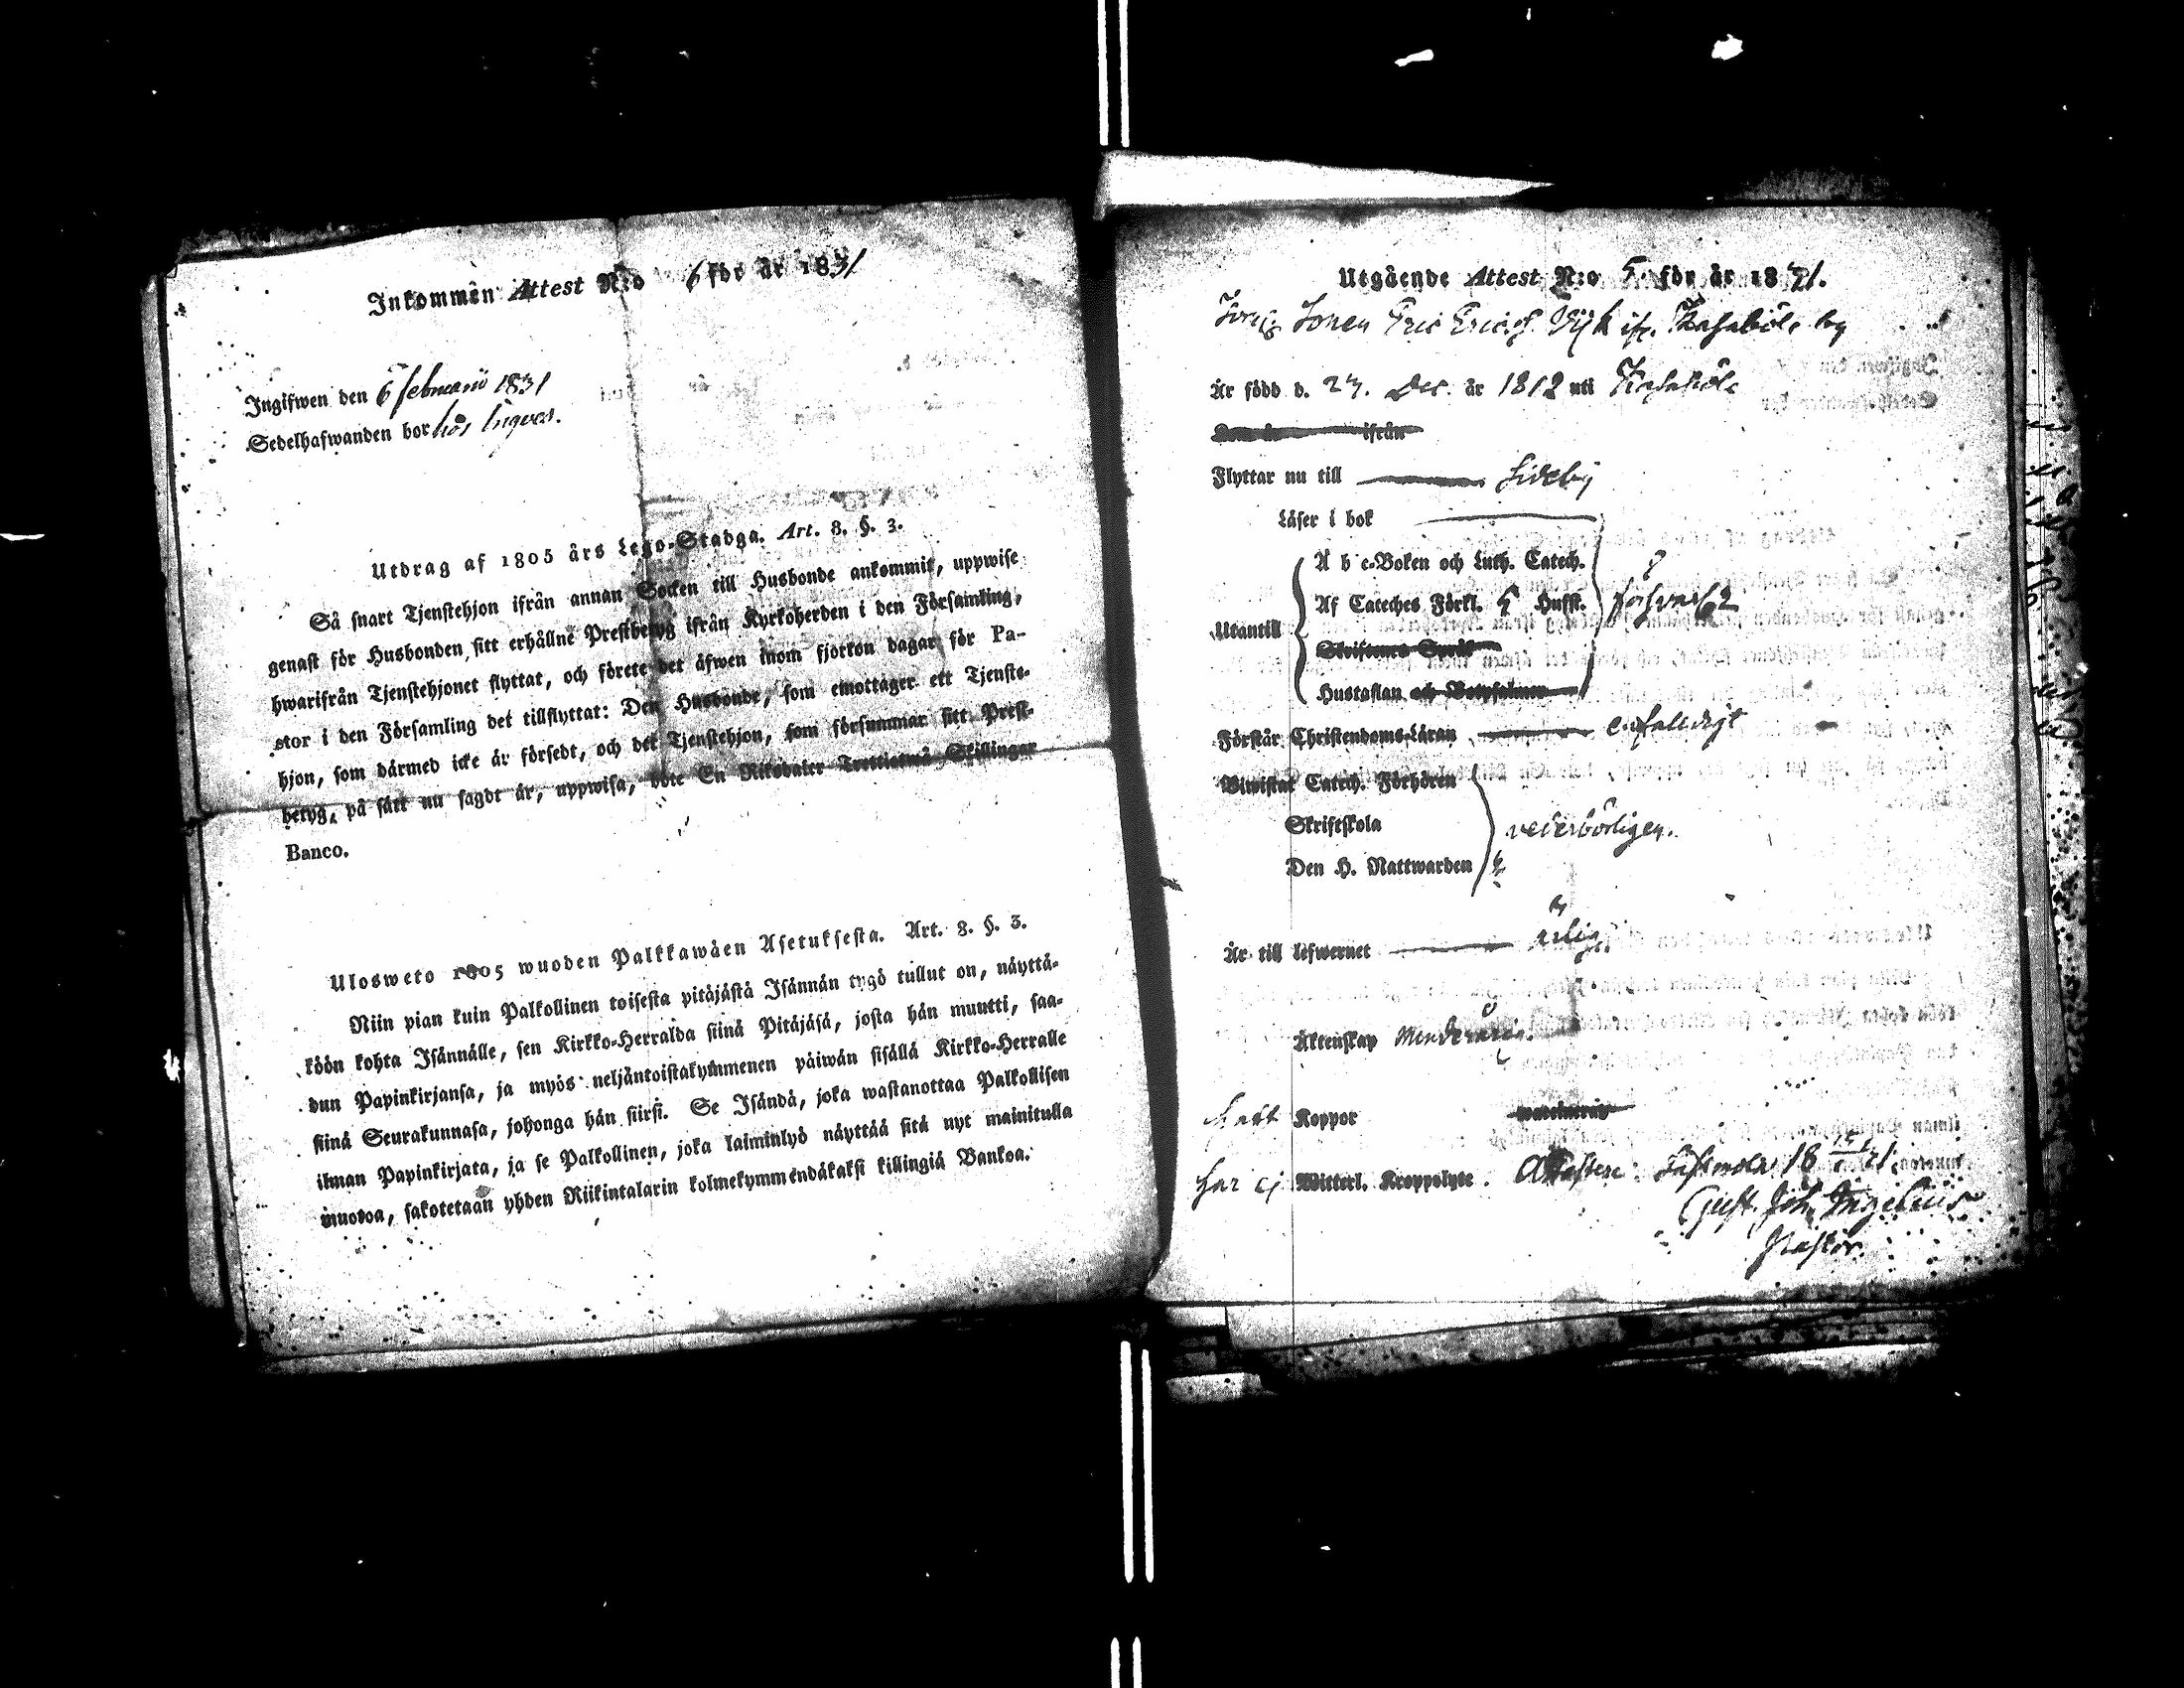 Inkommen Attest N:o 6 för år 1831
Ingifwen den 6 februarii 1831
Sedelhafwanden bor hos Ingves.
Utdrag af 1805 års Lego-Stadga. Art. 8. §. 3.
Så snart Tjenstehjon ifrån annan Socken till Husbonde ankommit, uppwise
genast för Husbonden sitt erhållne Prestbetyg ifrån Kyrkoherden i den Församling,
hwarifrån Tjenstehjonet flyttat, och förete det äfwen inom fjorton dagar för Pa-
stor i den Församling det tillflyttat: Den Husbonde, som emottager ett Tjenste-
hjon, som därmed icke är försedt, och det Tjenstehjon, som försummar sitt Prest-
betyg, på sätt nu sagdt är, uppwisa, böte En Riksdaler Trettiotwå Skillingar
Banco.
Ulosweto 1805 wuoden Palkkawäen Asetuksesta. Art. 8. §. 3.
Niin pian kuin Palkollinen toisesta pitäjästä Isännän tygö tullut on, näyttä-
köön kohta Isännälle, sen Kirkko-Herralda siinä Pitäjäsä, josta hän muutti, saa-
dun Papinkirjansa, ja myös neljäntoistakymmenen päiwän sisällä Kirkko-Herralle
siinä Seurakunnasa, johonga hän siirsi. Se Isändä, joka wastanottaa Palkollisen
ilman Papinkirjata, ja se Palkollinen, joka laiminlyö näyttää sitä nyt mainitulla
muotoa, sakotetaan yhden Riikintalarin kolmekymmendäkaksi killingiä Bankoa.
Utgående Attest N:o 5 för år 1831.
Sonen Eric Ericss. Vijk ifr. Kasaböle by
Är född d. 23. Dec. år 1812 uti Kasaböle
ifrån
Flyttar nu till Sideby
Läser i bok
A b c-Boken och Luth. Catech.
Af Cateches Förkl. 5 Hufst. försvarl.
Utantill
Skriftenes Språk
Hustaflan och Botpsalmer
Förstår Christendoms-Läran enfalldigt
Biwistat Catech. Förhören
Skriftskola vederbörligen.
Den H. Nattwarden
Är till lefwernet ärlig.
Äktenskap Minderårig.
haft Koppor
har ej Witterl. Kroppslyte. Attestera: Lappfjerd 18 31.
Gust. Joh. Ingelius
Pastor.